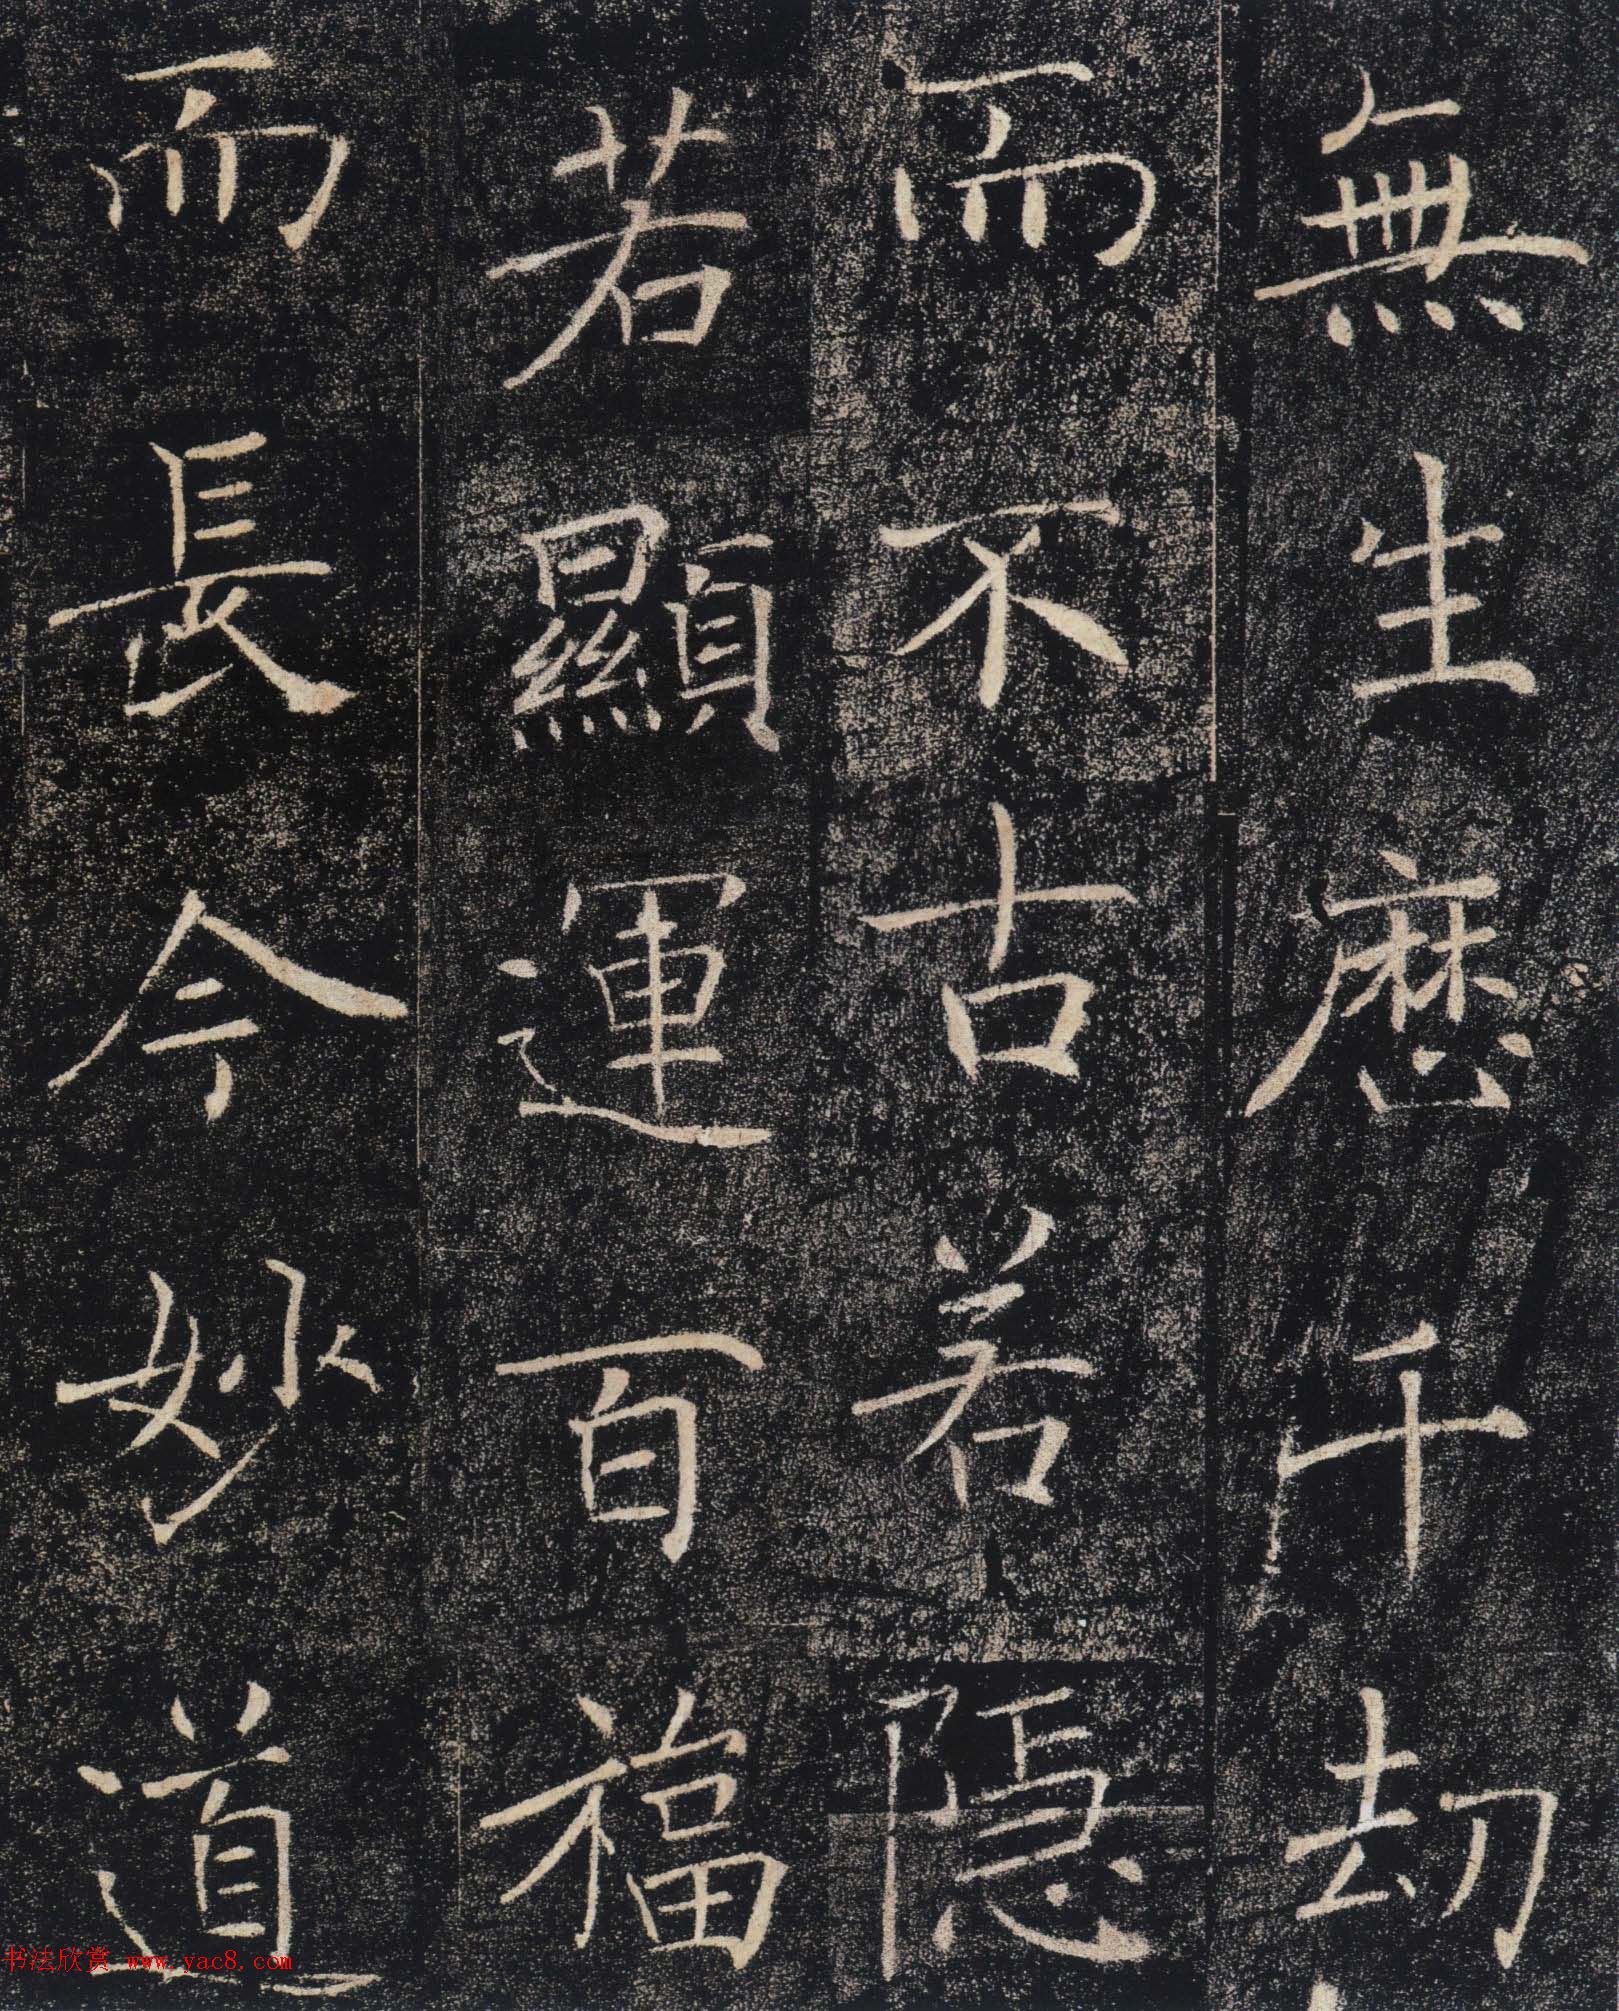 無生歷千劫
而不古若隱
若顯運百福
而長今妙道
书法欣赏 www.yac8.com